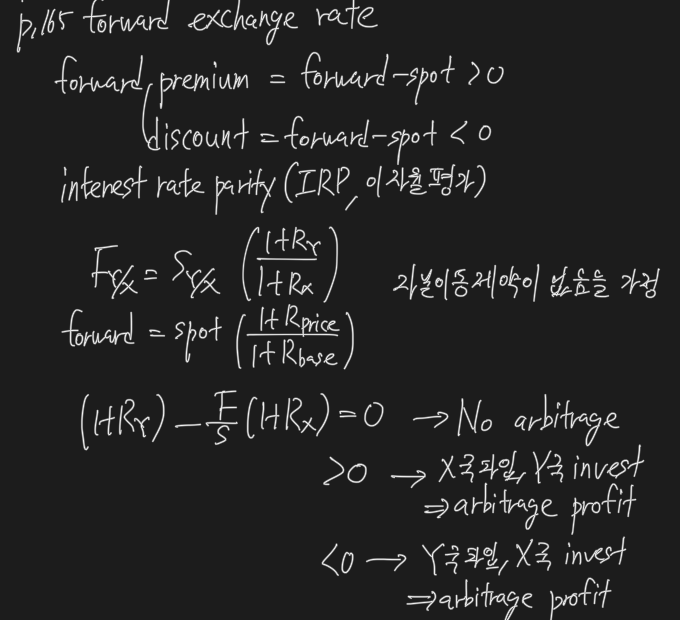 p.165 forward exchange rate
forward premium = forward-spot > 0
discount = forward-spot < 0
interest rate parity (IRP, 이자율평가)
F_Y/X = S_Y/X ((1+R_Y)/(1+R_X)) 자본이동제약이 없음을 가정
forward = spot ((1+R_price)/(1+R_base))
(1+R_Y) - F/S (1+R_X) = 0 → No arbitrage
>0 → X국차입, Y국 invest
⇒ arbitrage profit
<0 → Y국차입, X국 invest
⇒ arbitrage profit